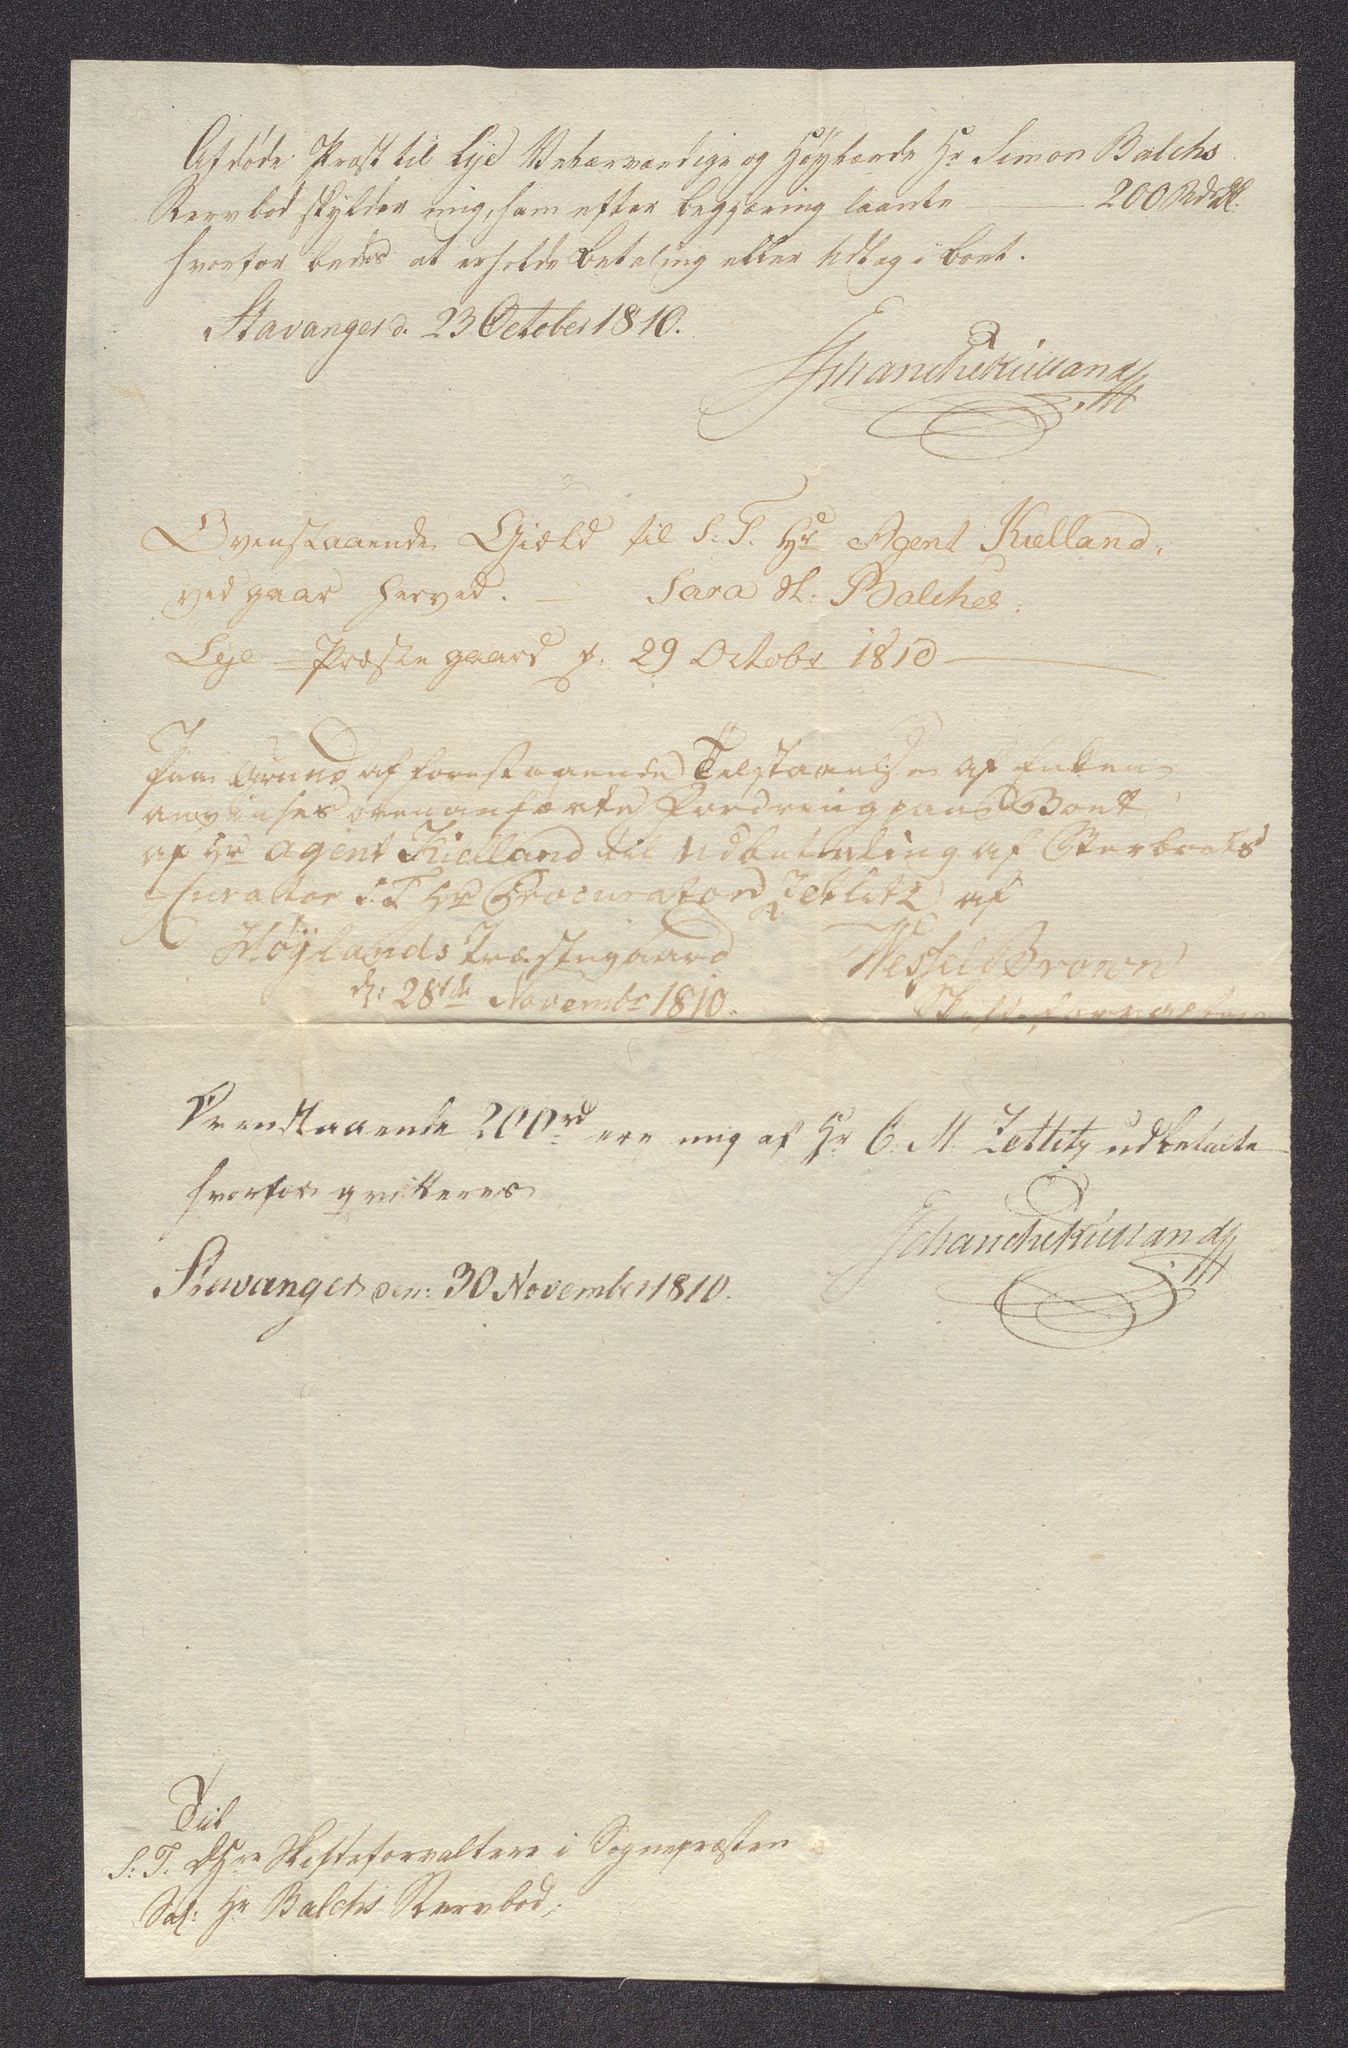 Afdøde Præst til Lye Velærværdige og Høylærde Hr Simon Balchs
Stervbod skylder mig, ham efter begjæring laante — 200 Rdlr.
hvorfor bedes at erholde betaling eller Udlæg i boet.
Stavanger d. 23 October 1810.
Schanche Kielland
Ovenstaaende Giæld til S. T. Hr Agent Kielland,
vedgaar herved. — Sara Balches.
Lye Præstegaard d. 29 Octobr 1810
Paa Grund af forestaaende Tilstaaelse af Enken
anviises ovenanførte Fordring paa Boet
af Hr Agent Kielland til Udbetaling af Sterboets
Curator S. T. Hr Procurator Zetlitz af
Høylands Præstegaard Wessel Brown
d: 28de Novembr 1810. Skifteforvalter
Ovenstaaende 200 rd ere mig af Hr C. M. Zetlitz udbetalte
hvorfor qvitteres
Stavanger den: 30 November 1810.
Schanche Kielland
Til
S: T. DHrr Skifteforvaltere i Sognepræsten
Sal: Hr Balchs Stervbod,